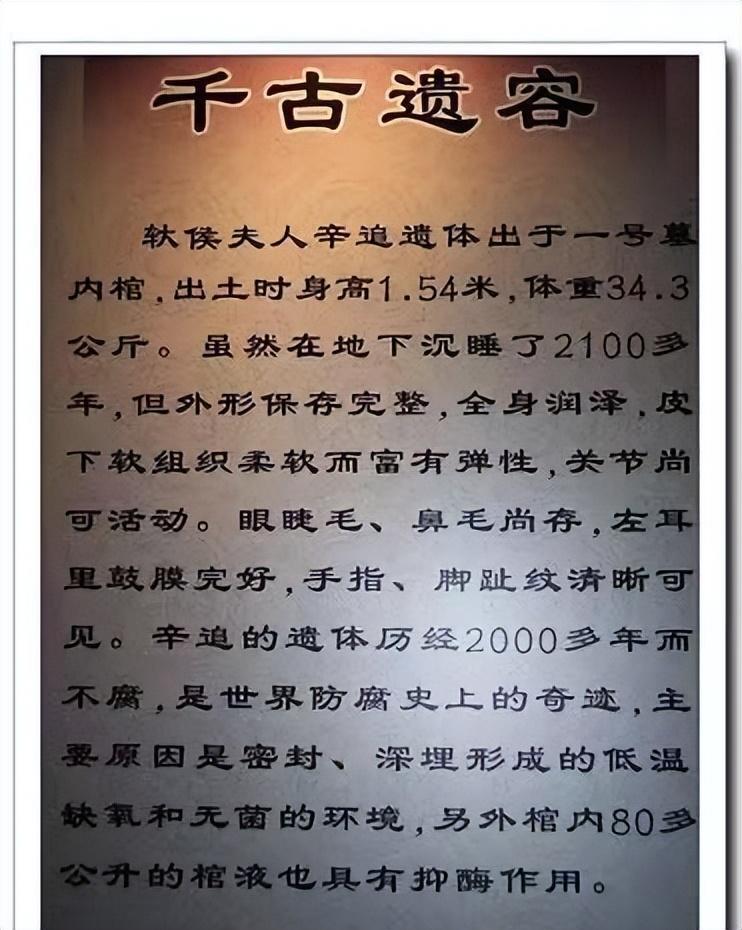 千古遗容
轪侯夫人辛追遗体出于一号墓
内棺,出土时身高1.54米,体重34.3
公斤。虽然在地下沉睡了2100多
年,但外形保存完整,全身润泽,皮
下软组织柔软而富有弹性,关节尚
可活动。眼睫毛、鼻毛尚存,左耳
里鼓膜完好,手指、脚趾纹清晰可
见。辛追的遗体历经2000多年而
不腐,是世界防腐史上的奇迹,主
要原因是密封、深埋形成的低温
缺氧和无菌的环境,另外棺内80多
公升的棺液也具有抑酶作用。